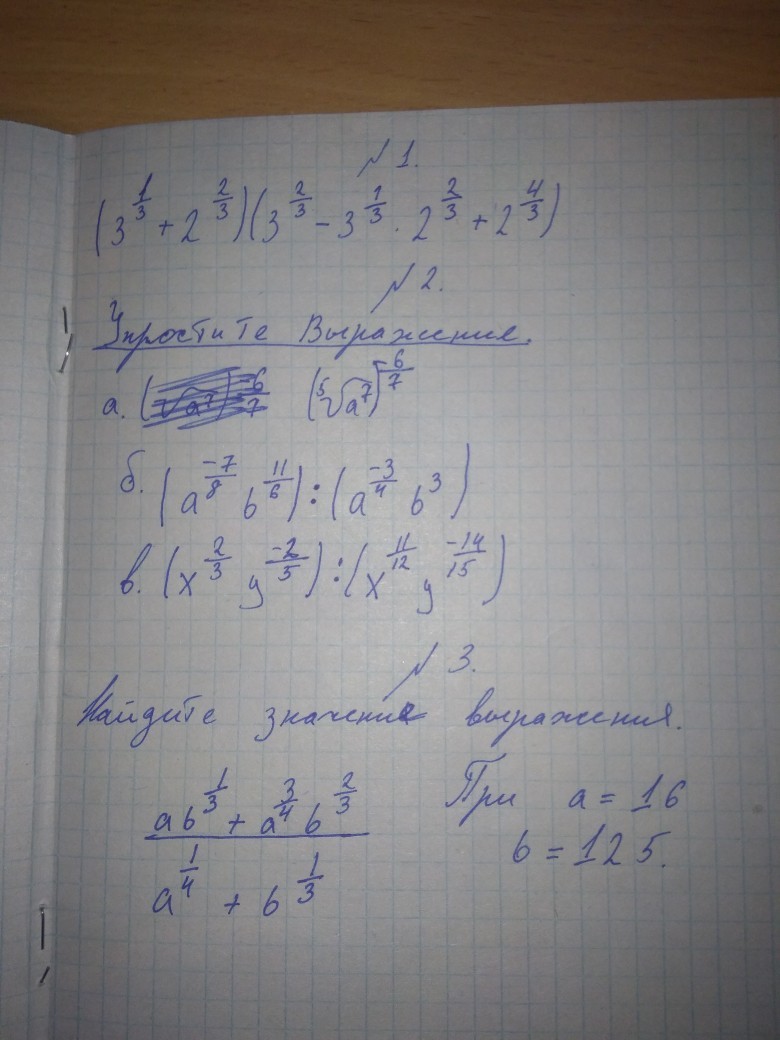 № 1.
(3^{1/3} + 2^{2/3})(3^{2/3} - 3^{1/3} · 2^{2/3} + 2^{4/3})
№ 2.
Упростите Выражение.
а. (⁵√a⁷)^{-6/7}
б. (a^{-7/8} b^{11/6}) : (a^{-3/4} b³)
в. (x^{2/3} y^{-2/5}) : (x^{11/12} y^{-14/15})
№ 3.
Найдите значение выражения.
(ab^{1/3} + a^{3/4} b^{2/3}) / (a^{1/4} + b^{1/3}) При a = 16
b = 125.